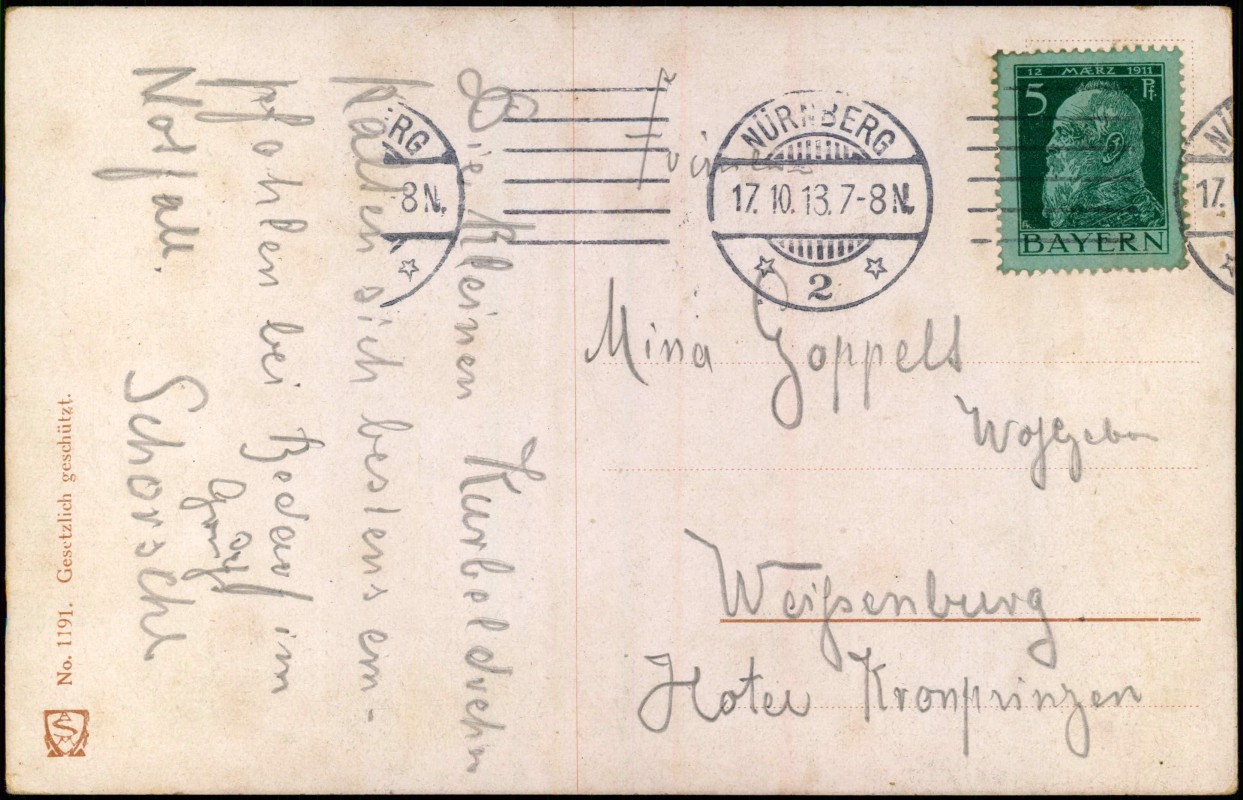 Die kleinen Kurbeldrehn
halten sich bestens em-
pfohlen bei Bedarf im
Notfall. Schorschl
No. 1191. Gesetzlich geschützt.
ERG
-8N.
NÜRNBERG
17.10.13.7-8N.
2
12 MÆRZ 1911
5 Pf.
BAYERN
N
17.
Fräulein
Mina Goppelt
Wohlgeboren
Weißenburg
Hotel Kronprinzen